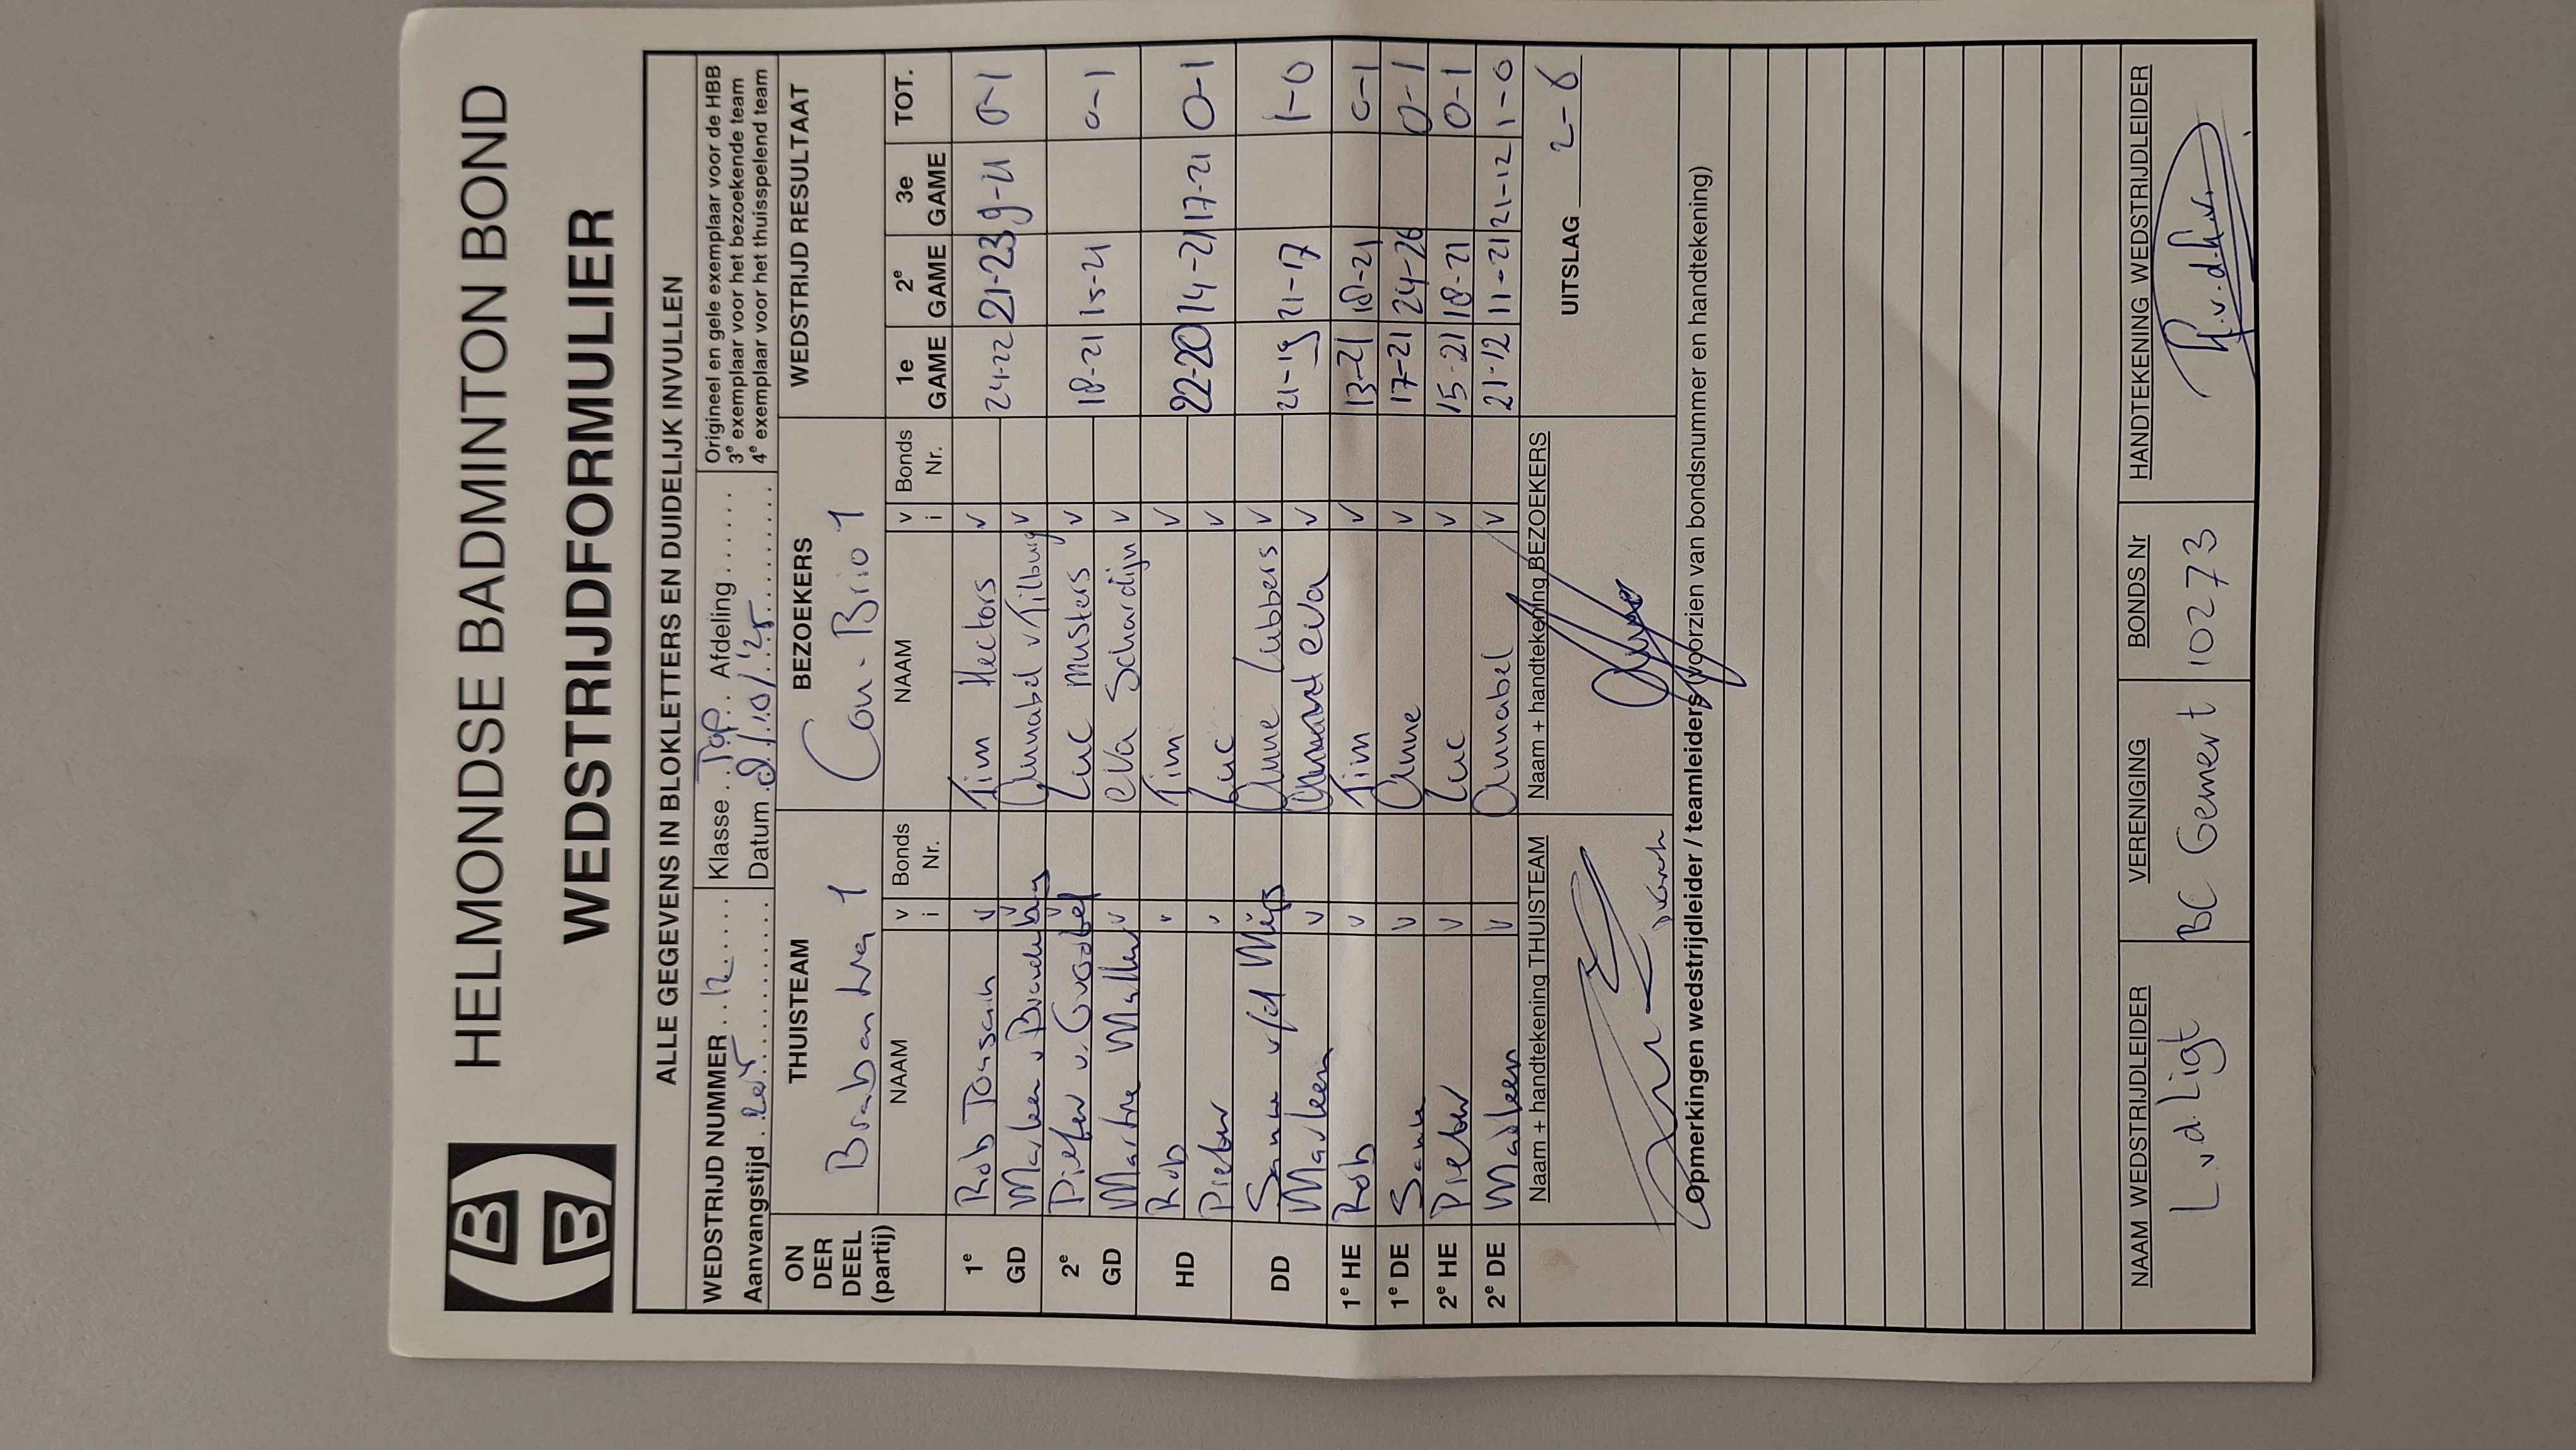 HELMONDSE BADMINTON BOND
WEDSTRIJDFORMULIER
ALLE GEGEVENS IN BLOKLETTERS EN DUIDELIJK INVULLEN
WEDSTRIJD NUMMER ..12..... Klasse ..Top.. Afdeling ...... Origineel en gele exemplaar voor de HBB
3e exemplaar voor het bezoekende team
Aanvangstijd . Datum . 4e exemplaar voor het thuisspelend team
ON DER DEEL (partij) THUISTEAM BEZOEKERS WEDSTRIJD RESULTAAT
Brabantia 1 Con-Brio 1
NAAM v i Bonds Nr. NAAM v i Bonds Nr. 1e GAME 2e GAME 3e GAME TOT.
1e GD Rob v Tim Hectors v 24-22 21-23 9-21 0-1
Marleen v Annabel v Tilburg v
2e GD Pieter v. v Luc Musters v 18-21 15-21 0-1
Martine v Eva Schardijn v
HD Rob v Tim v 22-20 14-21 17-21 0-1
Pieter v Luc v
DD Sanne v/d Anne Lubbers v 21-19 21-17 1-0
Marleen v Eva v
1e HE Rob v Tim v 13-21 18-21 0-1
1e DE Sanne v Anne v 17-21 24-26 0-1
2e HE Pieter v Luc v 15-21 18-21 0-1
2e DE Marleen v Annabel v 21-12 11-21 21-12 1-0
Naam + handtekening THUISTEAM Naam + handtekening BEZOEKERS UITSLAG 2-6
Opmerkingen wedstrijdleider / teamleiders (voorzien van bondsnummer en handtekening)
NAAM WEDSTRIJDLEIDER VERENIGING BONDS Nr HANDTEKENING WEDSTRIJDLEIDER
L.v.d.Ligt BC Gemert 10273